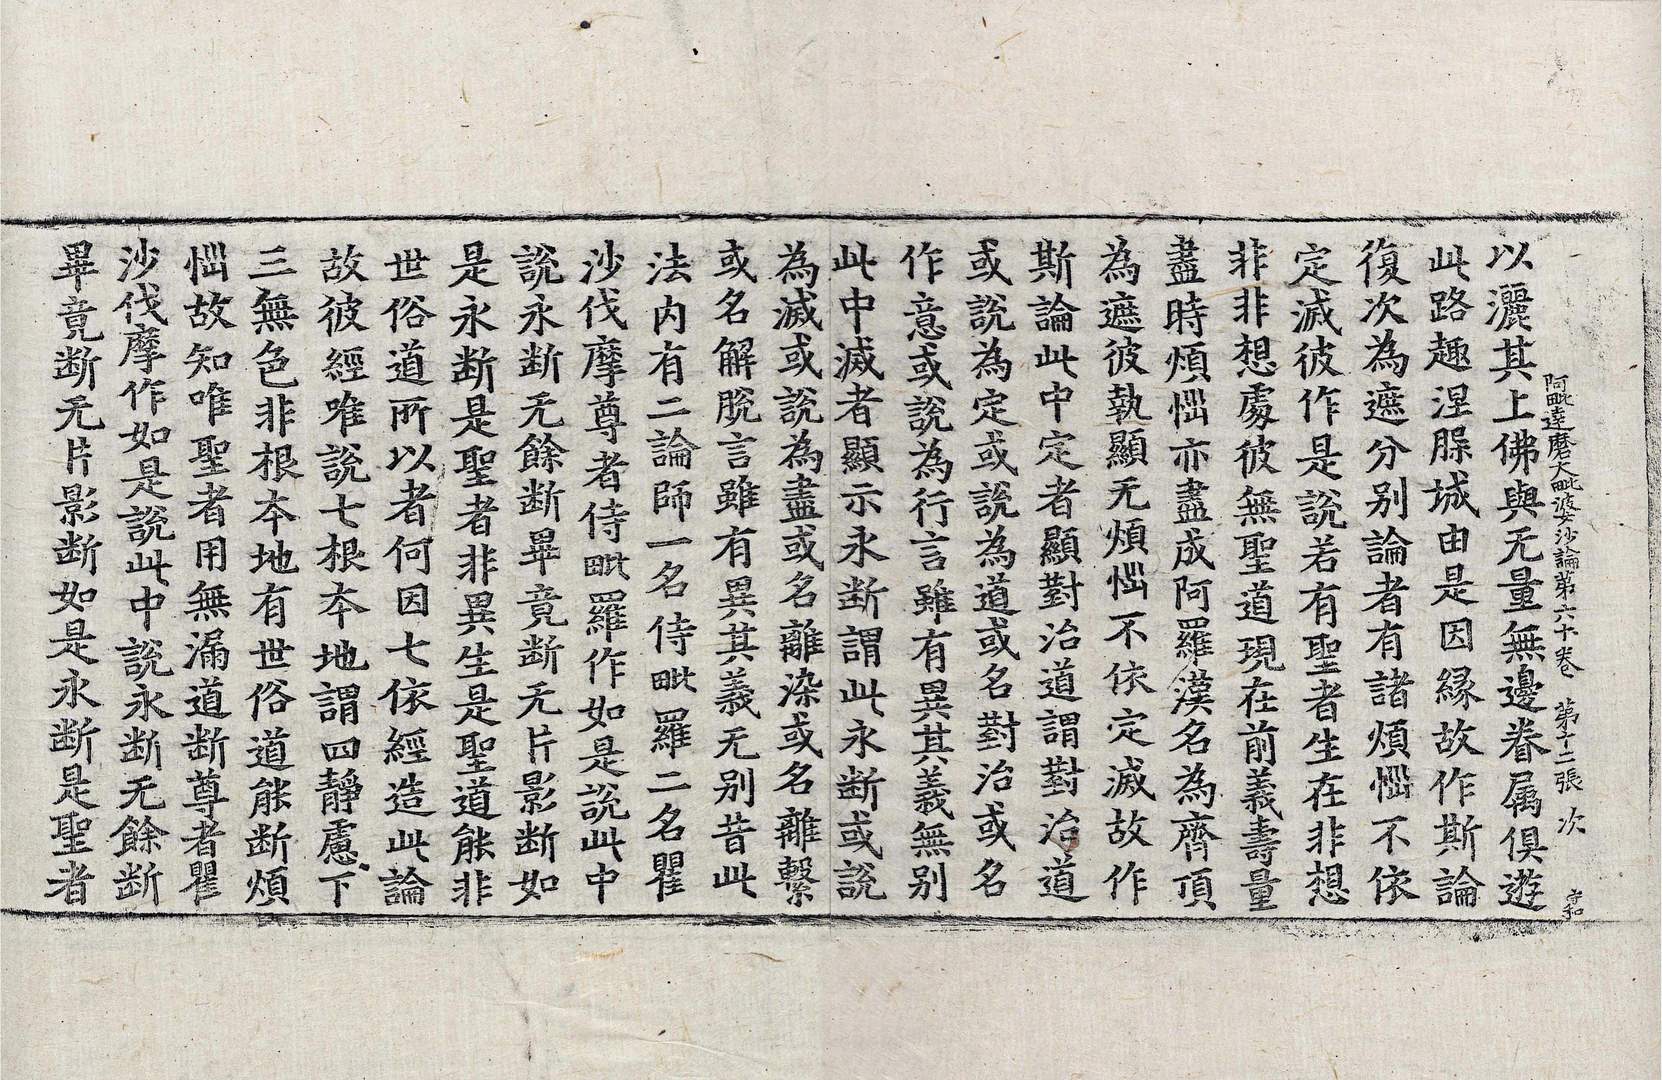 阿毗達磨大毗婆沙論第六十卷 第十二張 次 守和
以灑其上佛與无量無邊眷属俱遊
此路趣涅槃城由是因緣故作斯論
復次為遮分别論者有諸煩惱不依
定滅彼作是說若有聖者生在非想
非非想處彼無聖道現在前義壽量
盡時煩惱亦盡成阿羅漢名為齊頂
為遮彼執顯无煩惱不依定滅故作
斯論此中定者顯對治道謂對治道
或說為定或說為道或名對治或名
作意或說為行言雖有異其義無别
此中滅者顯示永断謂此永断或說
為滅或說為盡或名離染或名離繫
或名解脫言雖有異其義无别昔此
法内有二論師一名侍毗羅二名瞿
沙伐摩尊者侍毗羅作如是說此中
說永断无餘断畢竟断无片影断如
是永断是聖者非異生是聖道能非
世俗道所以者何因七依經造此論
故彼經唯說七根本地謂四靜慮下
三無色非根本地有世俗道能断煩
惱故知唯聖者用無漏道断尊者瞿
沙伐摩作如是說此中說永断无餘断
畢竟断无片影断如是永断是聖者